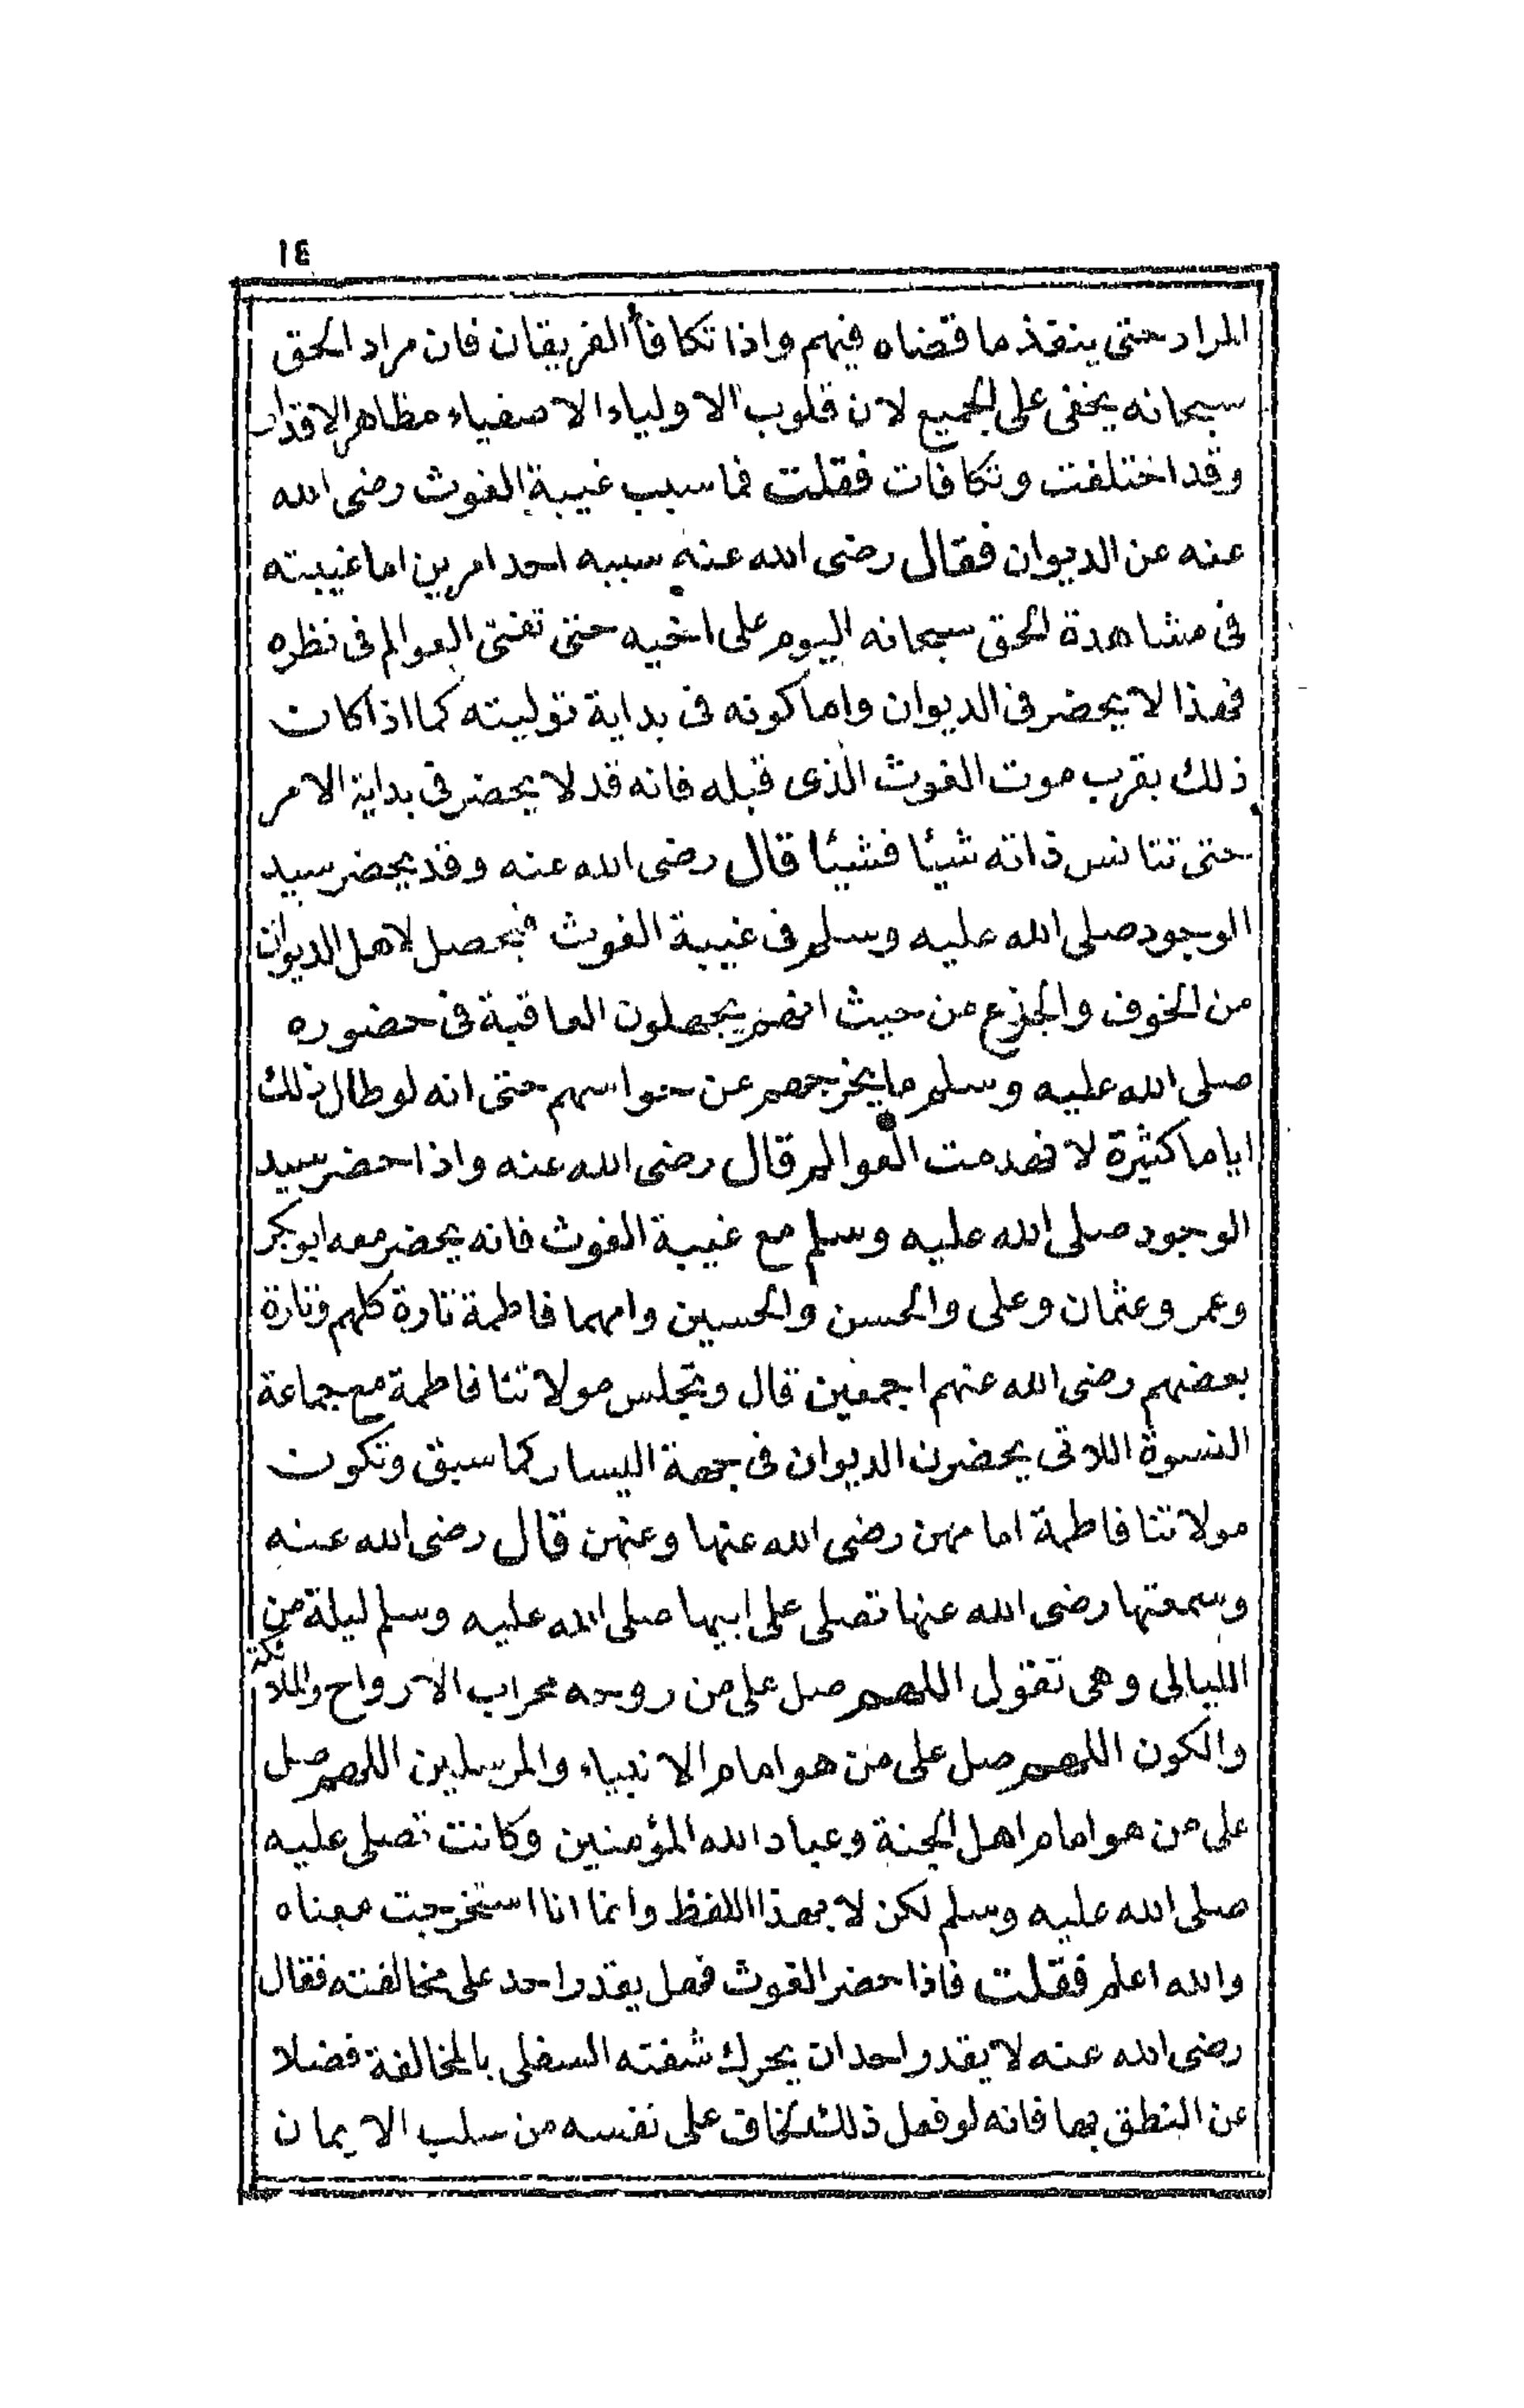 ١٤
المراد حتى ينفذ ما قضاه فيهم واذا تكافأ الفريقان فان مراد الحق
سبحانه يخفى على الجميع لان قلوب الاولياء الاصفياء مظاهر الاقدار
وقد اختلفت وتكافات فقلت فما سبب غيبة الغوث رضى الله
عنه عن الديوان فقال رضى الله عنه سببه احد امرين اما غيبته
فى مشاهدة الحق سبحانه اليوم على اخيه حتى تفنى العوالم فى نظره
فهذا لا يحضر فى الديوان واما كونه فى بداية توليته كما اذا كان
ذلك بقرب موت الغوث الذى قبله فانه قد لا يحضر فى بداية الامر
حتى تتانس ذاته شيئا فشيئا قال رضى الله عنه وقد يحضر سيد
الوجود صلى الله عليه وسلم فى غيبة الغوث فيحصل لاهل الديوان
من الخوف والجزع من حيث انهم يجهلون العاقبة فى حضوره
صلى الله عليه وسلم ما يخرجهم عن حواسهم حتى انه لو طال ذلك
اياما كثيرة لانهدمت العوالم قال رضى الله عنه واذا حضر سيد
الوجود صلى الله عليه وسلم مع غيبة الغوث فانه يحضر معه ابو بكر
وعمر وعثمان وعلى والحسن والحسين وامهما فاطمة تارة كلهم وتارة
بعضهم رضى الله عنهم اجمعين قال وتجلس مولاتنا فاطمة مع جماعة
النسوة اللاتى يحضرن الديوان فى جهة اليسار كما سبق وتكون
مولاتنا فاطمة امامهن رضى الله عنها وعنهن قال رضى الله عنه
وسمعتها رضى الله عنها تصلى على ابيها صلى الله عليه وسلم ليلة من
الليالى وهى تقول اللهم صل على من روحه محراب الارواح والملائكة
والكون اللهم صل على من هو امام الانبياء والمرسلين اللهم صل
على من هو امام اهل الجنة وعباد الله المؤمنين وكانت تصلى عليه
صلى الله عليه وسلم لكن لا بهذا اللفظ وانما انا استخرجت معناه
والله اعلم فقلت فاذا حضر الغوث فهل يقدر احد على مخالفته فقال
رضى الله عنه لا يقدر احد ان يحرك شفته السفلى بالمخالفة فضلا
عن النطق بها فانه لو فعل ذلك لخاف على نفسه من سلب الايمان